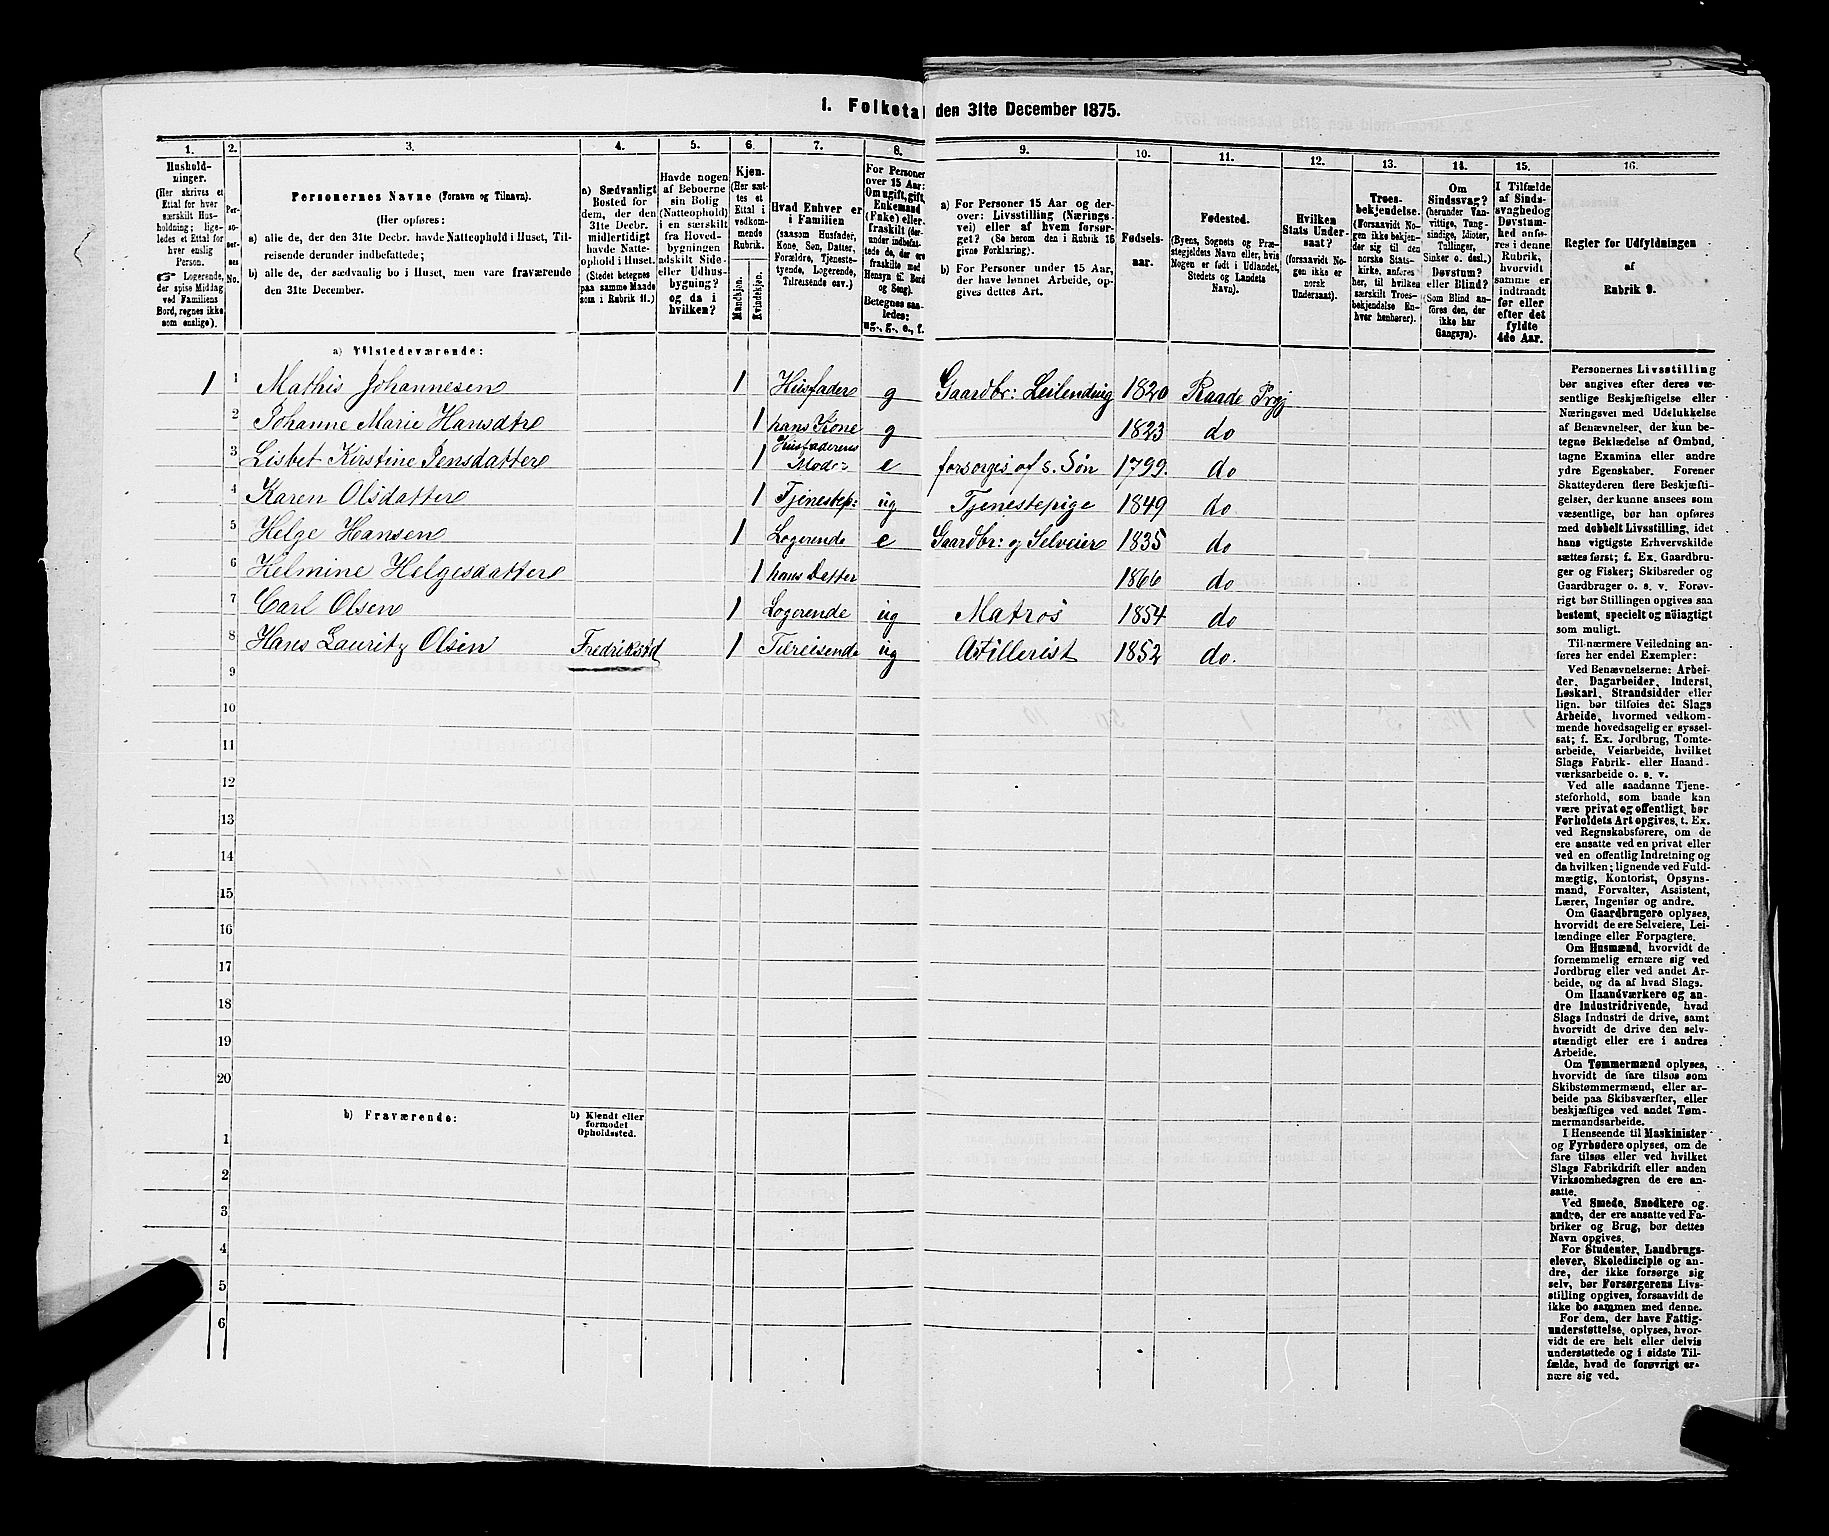 1. Folketal den 31te December 1875.
1. 2. 3. 4. 5. 6. 7. 8. 9. 10. 11. 12. 13. 14. 15. 16.
Hushold-
ninger.
(Her skrives et
Ettal for hver
særskilt Hus-
holdning; lige-
ledes et Ettal for
hver enslig
Person.
☞ Logerende,
der spise Middag
ved Familiens
Bord, regnes ikke
som enslige).
Per-
so-
ner-
nes
No.
Personernes Navne (Fornavn og Tilnavn).
(Her opføres:
a) alle de, der den 31te Decbr. havde Natteophold i Huset, Til-
reisende derunder indbefattede;
b) alle de, der sædvanlig bo i Huset, men vare fraværende
den 31te December.
a) Sædvanligt
Bosted for
dem, der den
31te Decbr.
midlertidigt
havde Natte-
ophold i Huset.
(Stedet betegnes
paa samme Maade
som i Rubrik 11.)
Havde nogen
af Beboerne
sin Bolig
(Natteophold)
i en særskilt
fra Hoved-
bygningen
adskilt Side-
eller Udhus-
bygning?
og da i
hvilken?
Kjøn.
(Her sæt-
tes et
Ettal i
vedkom-
mende
Rubrik.
Mandkjøn.
Kvindekjøn.
Hvad Enhver er
i Familien
(saasom Husfader,
Kone, Søn, Datter,
Forældre, Tjeneste-
tyende, Logerende,
Tilreisende osv.)
For Personer
over 15 Aar:
Om ugift, gift,
Enkemand
(Enke) eller
fraskilt (der-
under indbefat-
tede de, der ere
fraskilte med
Hensyn til Bord
og Seng).
Betegnes saa-
ledes:
ug., g., e., f.
a) For Personer 15 Aar og der-
over: Livsstilling (Nærings-
vei) eller af hvem forsør-
get? (Se herom den i Rubrik 16
givne Forklaring).
b) For Personer under 15 Aar,
der have lønnet Arbeide, op-
gives dettes Art.
Fødsels-
aar.
Fødested.
(Byens, Sognets og Præ-
stegjeldets Navn eller, hvis
Nogen er født i Udlandet,
Stedets og Landets
Navn).
Hvilken
Stats Under-
saat?
(forsaavidt No-
gen ikke er
norsk
Undersaat).
Troes-
bekjendelse.
(Forsaavidt No-
gen ikke bekjen-
der sig til den
norske Stats-
kirke, anføres
her, til hvilken
særskilt Troes-
bekjendelse En-
hver henhører).
Om
Sindssvag?
(herunder Van-
vittige, Tung-
sindige, Idioter,
Tullinger,
Sinker o. desl.)
Døvstum?
eller Blind?
(Som Blind an-
føres den, der
ikke har
Gangsyn).
I Tilfælde
af Sinds-
svaghed og
Døvstum-
hed anfø-
res i denne
Rubrik,
hvorvidt
samme er
indtraadt
før eller
efter det
fyldte
4de Aar.
Regler for Udfyldningen
af
Rubrik 9.
a) Tilstedeværende:
1 1 Mathis Johannesen 1 Husfader g Gaardbr: Leilending 1820 Raade Prgj
2 Johanne Marie Hansdtr 1 hans Kone g 1823 do
3 Lisbet Kirstine Jensdatter 1 Husfaderens Moder e forsørges af s. Søn 1799. do
4 Karen Olsdatter 1 Tjenestep: ug Tjenestepige 1849 do
5 Helge Hansen 1 Logerende e Gaardbr: og Selveier 1835 do
6 Helmine Helgesdatter 1 hans Datter 1866 do
7 Carl Olsen 1 Logerende ug Matros 1854 do
8 Hans Lauritz Olsen Fredriksstd 1 Tilreisende ug Artillerist 1852 do.
9
10
11
12
13
14
15
16
17
18
19
20
b) Fraværende:
b) Kjendt eller
formodet
Opholdssted.
1
2
3
4
5
6
Personernes Livsstilling
bør angives efter deres væ-
sentlige Beskjæftigelse eller
Næringsvei med Udelukkelse
af Benævnelser, der kun be-
tegne Beklædelse af Ombud,
tagne Examina eller andre
ydre Egenskaber. Forener
Skatteyderen flere Beskjæfti-
gelser, der kunne ansees som
væsentlige, bør han opføres
med dobbelt Livsstilling, idet
hans vigtigste Erhvervskilde
sættes først; f. Ex. Gaardbru-
ger og Fisker; Skibsreder og
Gaardbruger o. s. v. Forøv-
rigt bør Stillingen opgives saa
bestemt, specielt og nöiagtigt
som muligt.
Til nærmere Veiledning an-
føres her endel Exempler:
Ved Benævnelserne: Arbei-
der, Dagarbeider, Inderst,
Løskarl, Strandsidder eller
lign. bør tilføies det Slags
Arbeide, hvormed vedkom-
mende hovedsagelig er syssel-
sat; f. Ex. Jordbrug, Tomte-
arbeide, Veiarbeide, hvilket
Slags Fabrik- eller Haand-
værksarbeide o. s. v.
Ved alle saadanne Tjene-
steforhold, som baade kan
være privat og offentligt, bør
Forholdets Art opgives, t. Ex.
ved Regnskabsførere, om de
ere ansatte ved en privat eller
ved en offentlig Indretning og
da hvilken; lignende ved Fuld-
mægtig, Kontorist, Opsyns-
mand, Forvalter, Assistent,
Lærer, Ingeniør og andre.
Om Gaardbrugere oplyses,
hvorvidt de ere Selveiere, Lei-
lændinge eller Forpagtere.
Om Husmænd, hvorvidt de
fornemmelig ernære sig ved
Jordbrug eller ved andet Ar-
beide, og da af hvad Slags.
Om Haandværkere og an-
dre Industridrivende, hvad
Slags Industri de drive, samt
hvorvidt de drive den selv-
stændigt eller ere i andres
Arbeide.
Om Tømmermænd oplyses,
hvorvidt de fare tilsøs som
Skibstømmermænd, eller ar-
beide paa Skibsværfter, eller
beskjæftiges ved andet Tøm-
mermandsarbeide.
I Henseende til Maskinister
og Fyrbødere oplyses, om de
fare tilsøs eller ved hvilket
Slags Fabrikdrift eller anden
Virksomhedsgren de ere an-
satte.
Ved Smede, Snedkere og
andre, der ere ansatte ved Fa-
briker og Brug, bør dettes
Navn opgives.
For Studenter, Landbrugs-
elever, Skoledisciple og an-
dre, der ikke forsørge sig
selv, bør Forsørgerens Livs-
stilling opgives, forsaavidt de
ikke bo sammen med denne.
For dem, der have Fattig-
understøttelse, oplyses, hvor-
vidt de ere helt eller delvis
understøttede og i sidste Til-
fælde, hvad de forøvrigt er-
nære sig ved.